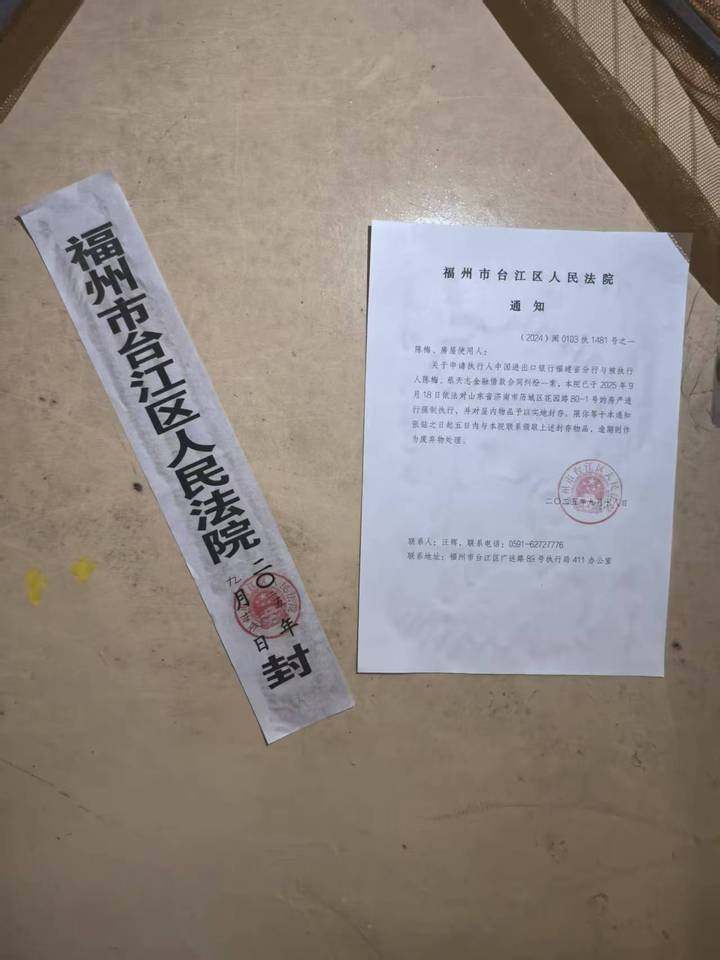 福州市台江区人民法院
二〇二五年
九月十八日
封
福州市台江区人民法院
通知
（2024）闽0103执1481号之一
陈梅、房屋使用人：
关于申请执行人中国进出口银行福建省分行与被执行
人陈梅、蔡天志金融借款合同纠纷一案，本院已于2025年9
月18日依法对山东省济南市历城区花园路80-1号的房产进
行强制执行，并对屋内物品予以实地封存。限你等于本通知
张贴之日起五日内与本院联系领取上述封存物品，逾期则作
为废弃物处理。
二〇二五年九月十八日
联系人：汪辉，联系电话：0591-62727776
联系地址：福州市台江区广达路8x号执行局411办公室